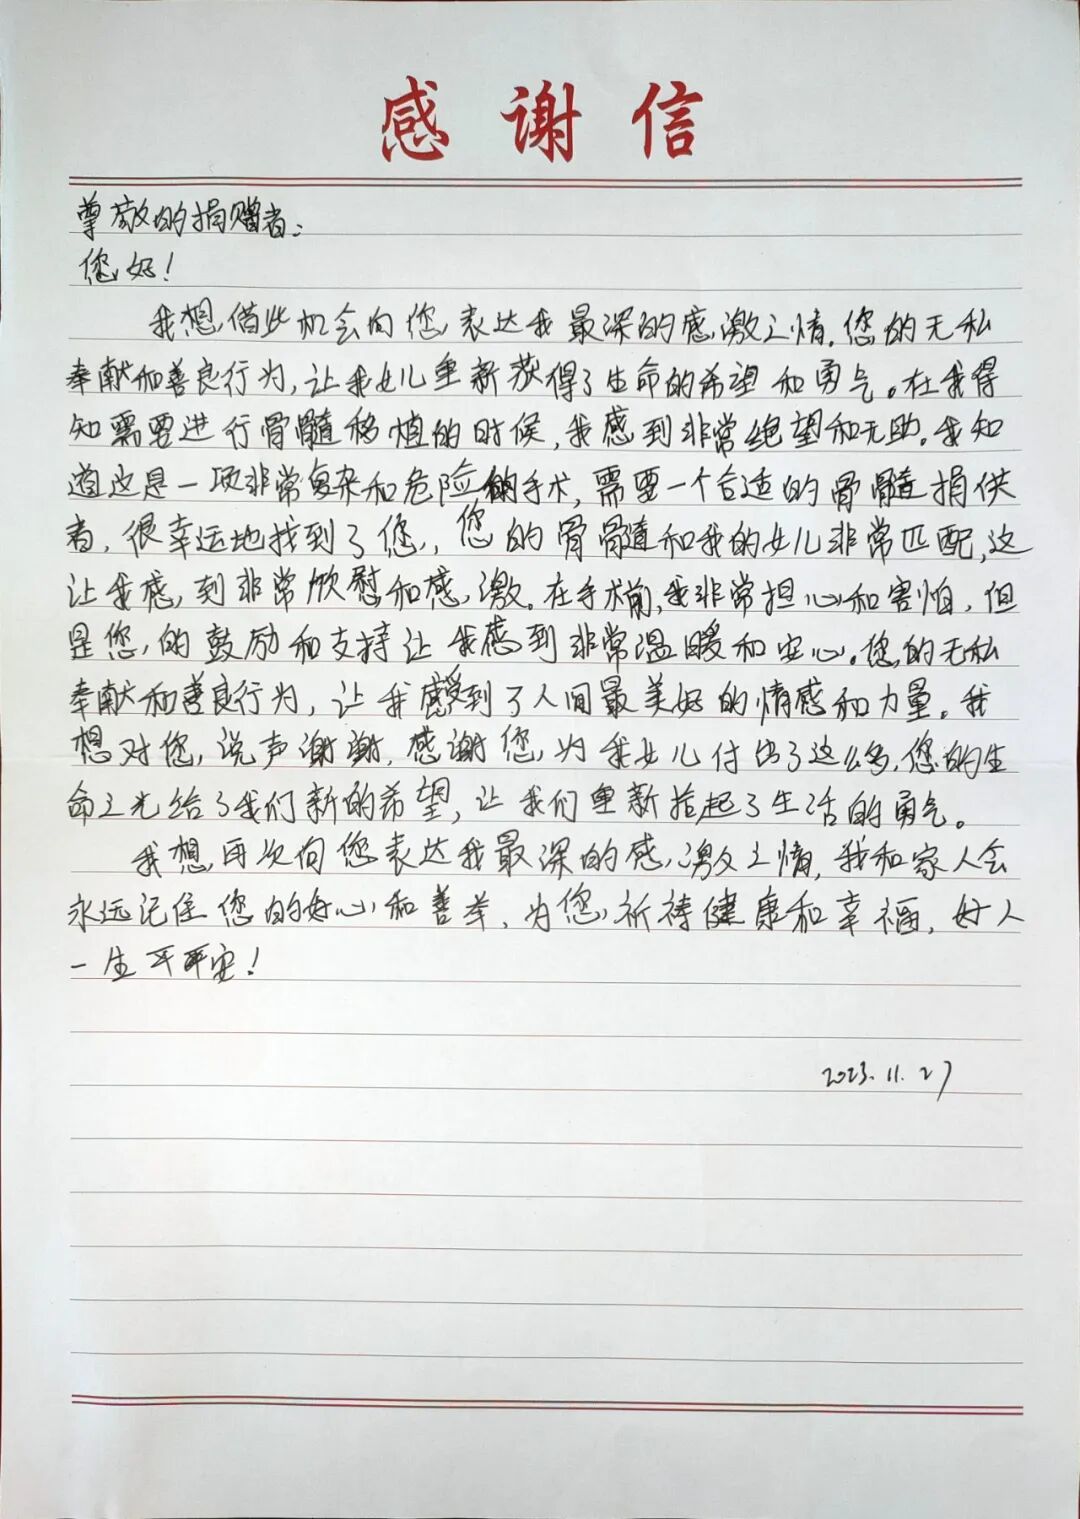 感谢信
尊敬的捐赠者：
您好！
我想借此机会向您表达我最深的感激之情。您的无私
奉献和善良行为，让我女儿重新获得了生命的希望和勇气。在我得
知需要进行骨髓移植的时候，我感到非常绝望和无助。我知
道这是一项非常复杂和危险的手术，需要一个合适的骨髓捐供
者，很幸运地找到了您，您的骨髓和我的女儿非常匹配，这
让我感到非常欣慰和感激。在手术前，我非常担心和害怕，但
是您的鼓励和支持让我感到非常温暖和安心。您的无私
奉献和善良行为，让我感受到了人间最美好的情感和力量。我
想对您说声谢谢，感谢您为我女儿付出了这么多，您的生
命之光给了我们新的希望，让我们重新拾起了生活的勇气。
我想再次向您表达我最深的感激之情，我和家人会
永远记住您的好心和善举，为您祈祷健康和幸福，好人
一生平平安！
2023.11.27